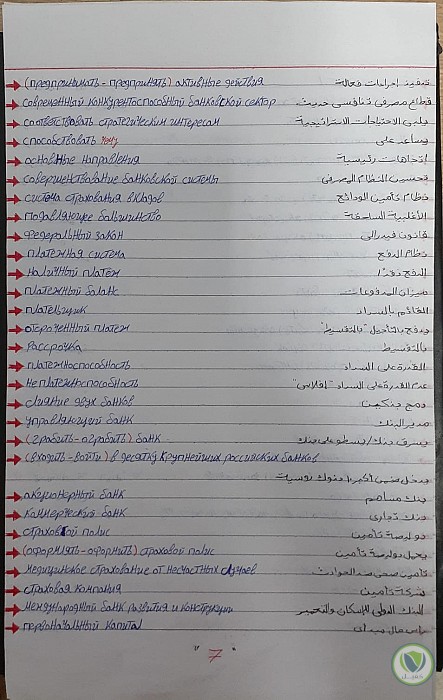 (предпринимать - предпринять) активные действия تنفيذ إجراءات فعالة
современный конкурентоспособный банковской сектор قطاع مصرفي تنافسي حديث
соответствовать стратегическим интересам يلبي الاحتياجات الاستراتيجية
способствовать чему يساعد على
основные направления اتجاهات رئيسية
совершенствование банковской системы تحسين النظام المصرفي
система страхования вкладов نظام تأمين الودائع
подавляющее большинство الأغلبية الساحقة
федеральный закон قانون فيدرالي
платежная система نظام الدفع
наличный платеж الدفع نقدًا
платежный баланс ميزان المدفوعات
плательщик القائم بالسداد
отсроченный платеж يدفع بالتأجيل "بالتقسيط"
рассрочка بالتقسيط
платежноспособность القدرة على السداد
неплатежноспособность عدم القدرة على السداد "إفلاس"
слияние двух банков دمج بنكين
управляющий банк مدير البنك
(грабить - ограбить) банк يسرق بنك / يسطو على بنك
(входить - войти) в десятку крупнейших российских банков
يدخل ضمن أكبر ١٠ بنوك روسية
акционерный банк بنك مساهم
коммерческий банк بنك تجاري
страховой полис بوليصة تأمين
(оформлять - оформить) страховой полис بوليصة تأمين
медицинское страхование от несчастных случаев تأمين صحي ضد الحوادث
страховая компания شركة تأمين
международный банк развития и конструкции البنك الدولي للإسكان والتعمير
первоначальный капитал رأس مال
" 7 "
كفيل